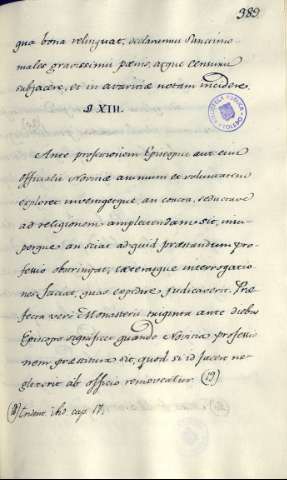 389
qua bona relinquat, declaramus
males gravissimis pœnis, atque censuris
subjacere, et in avaritiæ notam incidere.
§ XIII.
Ante professionem Episcopus aut ejus
officialis Novitiæ animum et voluntatem
exploret an coacta, seducta ve
ad religionem amplectendam sit,
an sciat ad quid præstandum pro-
fessio obstringat, cæterasque interrogatio-
nes faciat, quas expedire judicaverit. Præ-
fecta vero Monasterii triginta ante diebus
Episcopo significet quando Novitia professio-
nem sit, quod si id facere ne-
glexerit ab officio removeatur. (19)
cap. 17.